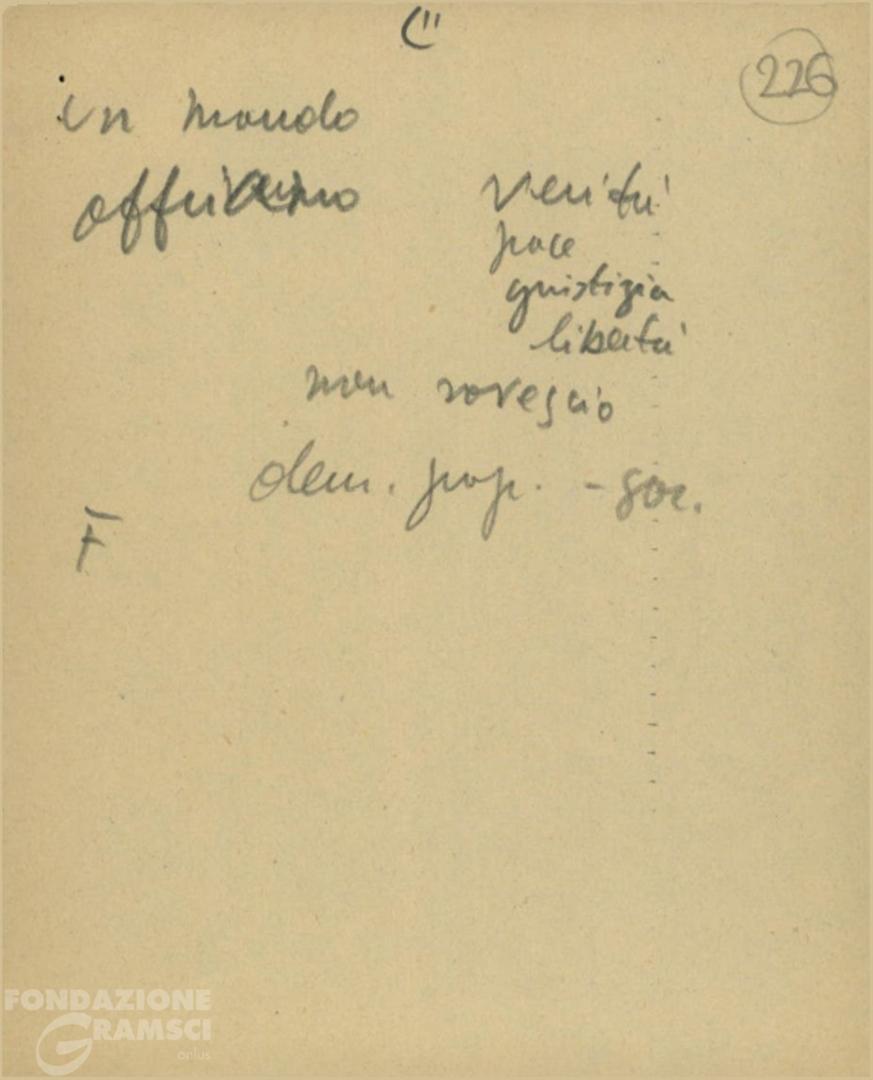 226
un mondo
offriamo
verità
pace
giustizia
libertà
non rovescio
dem. pop. - soc.
F
FONDAZIONE
GRAMSCI
onlus